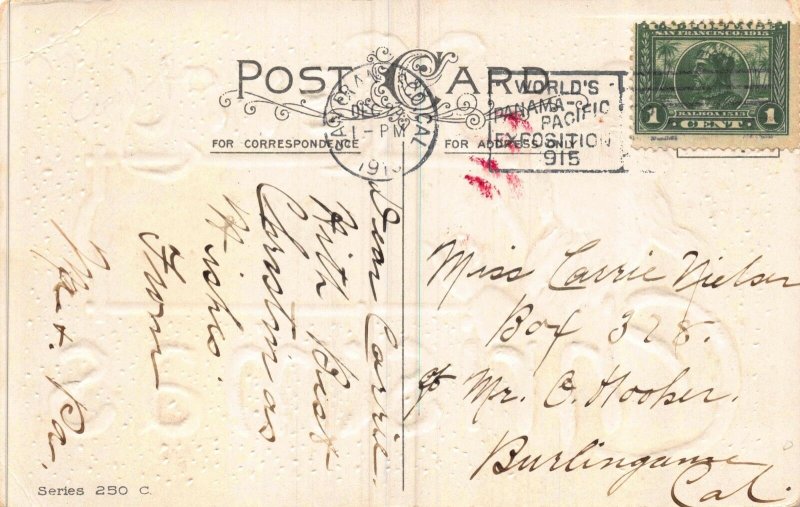 POST CARD
FOR CORRESPONDENCE
FOR ADDRESS ONLY
SAN FRANCISCO, CAL
DEC
1-PM
WORLD'S
PANAMA-PACIFIC
EXPOSITION
1915
SAN FRANCISCO 1915
BALBOA 1513
1 CENT 1
Dear Carrie.
With Best
Christmas
Wishes.
From
Ma. Pa.
Miss Carrie Nielsen
Box 328.
% Mr. O. Hooker.
Burlingame
Cal.
Series 250 C.